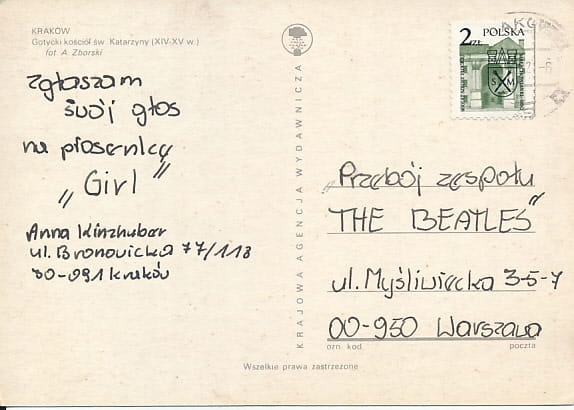 KRAKÓW
Gotycki kościół św. Katarzyny (XIV-XV w.)
fot A. Zborski
zgłaszam
swój głos
na piosenkę
„Girl”
Anna Kinzhuber
ul. Bronowicka 77/118
30-091 Kraków
KRAJOWA AGENCJA WYDAWNICZA
2 ZŁ
POLSKA
S M
„Przebój zespołu
THE BEATLES”
ul. Myśliwiecka 3-5-7
00-950 Warszawa
ozn kod
poczta
Wszelkie prawa zastrzeżone